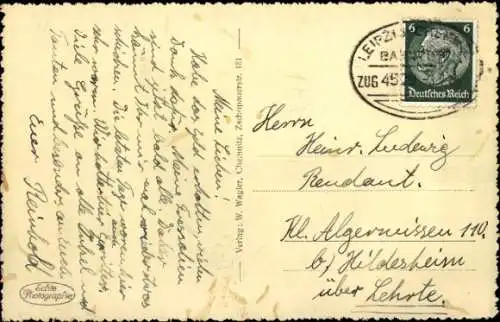 Meine Lieben!
Habe das Geld erhalten, vielen
Dank dafür. Meine
sind jetzt bald alle. Daher
könnt Ihr mir mal wieder etwas
schicken. Die letzten Tage waren hier
sehr warm. Wir hatten hier
Viele Grüße an alle
Tanten und besonders an Euch
Euer Reinhold
Echte
Photographie
Verlag: W. Wagler, Chemnitz, Zschopauerstr. 181
LEIPZIG
BAHNPOST
ZUG 45
6 6
Deutsches Reich
Herrn
Heinr. Ludewig
Rendant.
Kl. Algermissen 110.
b/ Hildesheim
über Lehrte.